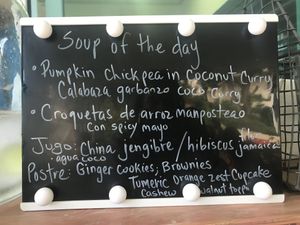 Soup of the day
• Pumpkin chickpea in coconut curry
Calabaza garbanzo coco curry
• Croquetas de arroz manposteao
con spicy mayo
Jugo: China jengibre / hibiscus jamaica
agua coco
Postre: Ginger cookies; Brownies
Tumeric orange zest cupcake
cashew walnut